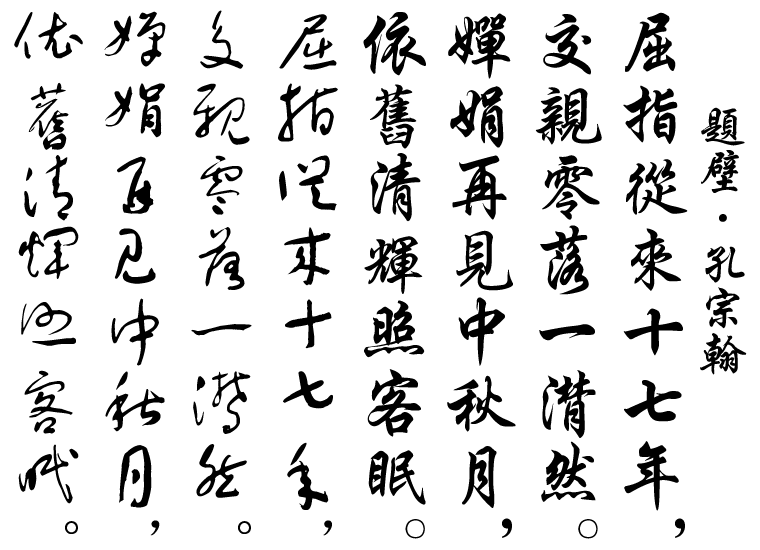 題壁·孔宗翰
屈指從來十七年，
交親零落一潸然。
嬋娟再見中秋月，
依舊清輝照客眠。
屈指從來十七年，
交親零落一潸然。
嬋娟再見中秋月，
依舊清輝照客眠。